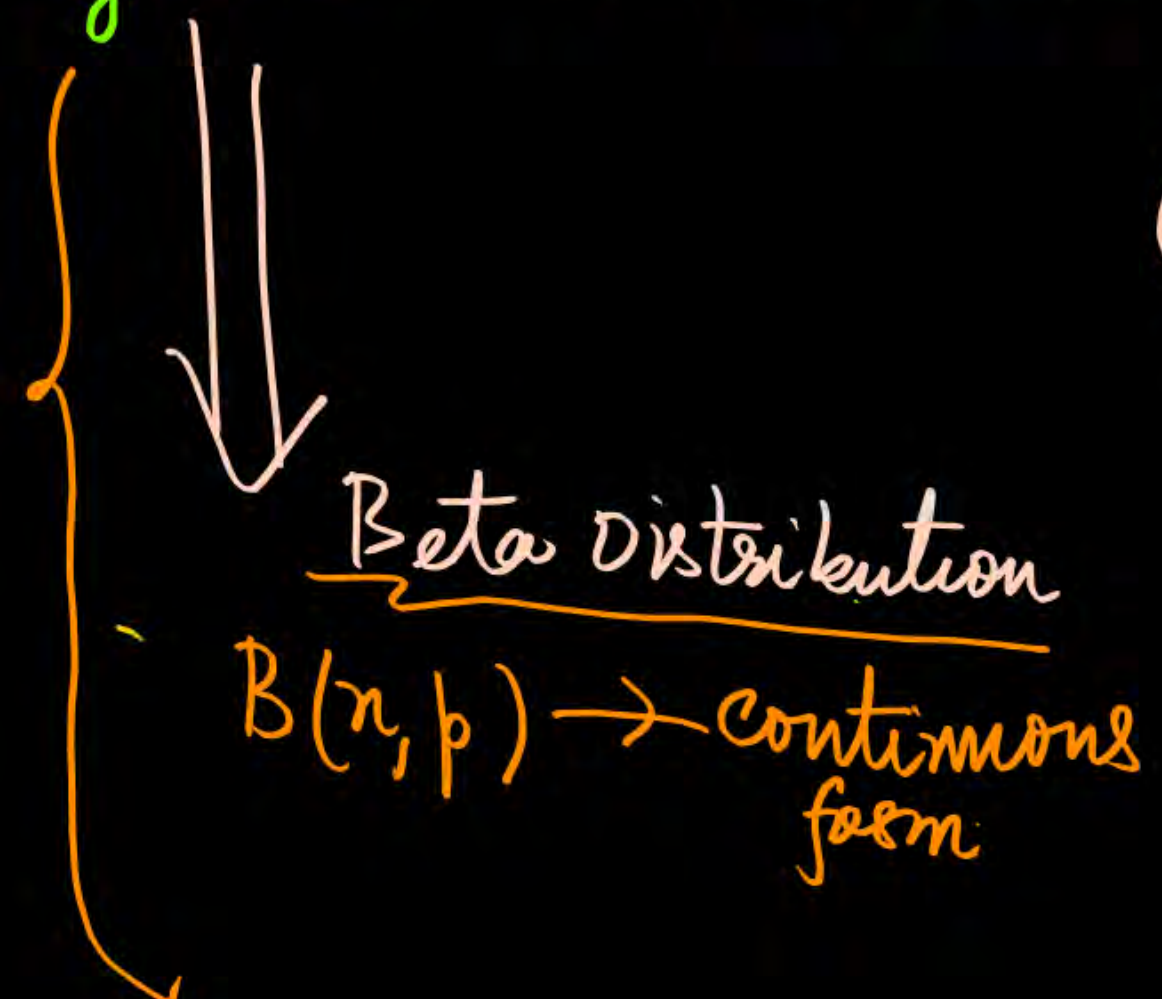 Beta Distribution
B(n, p) → continuous
form